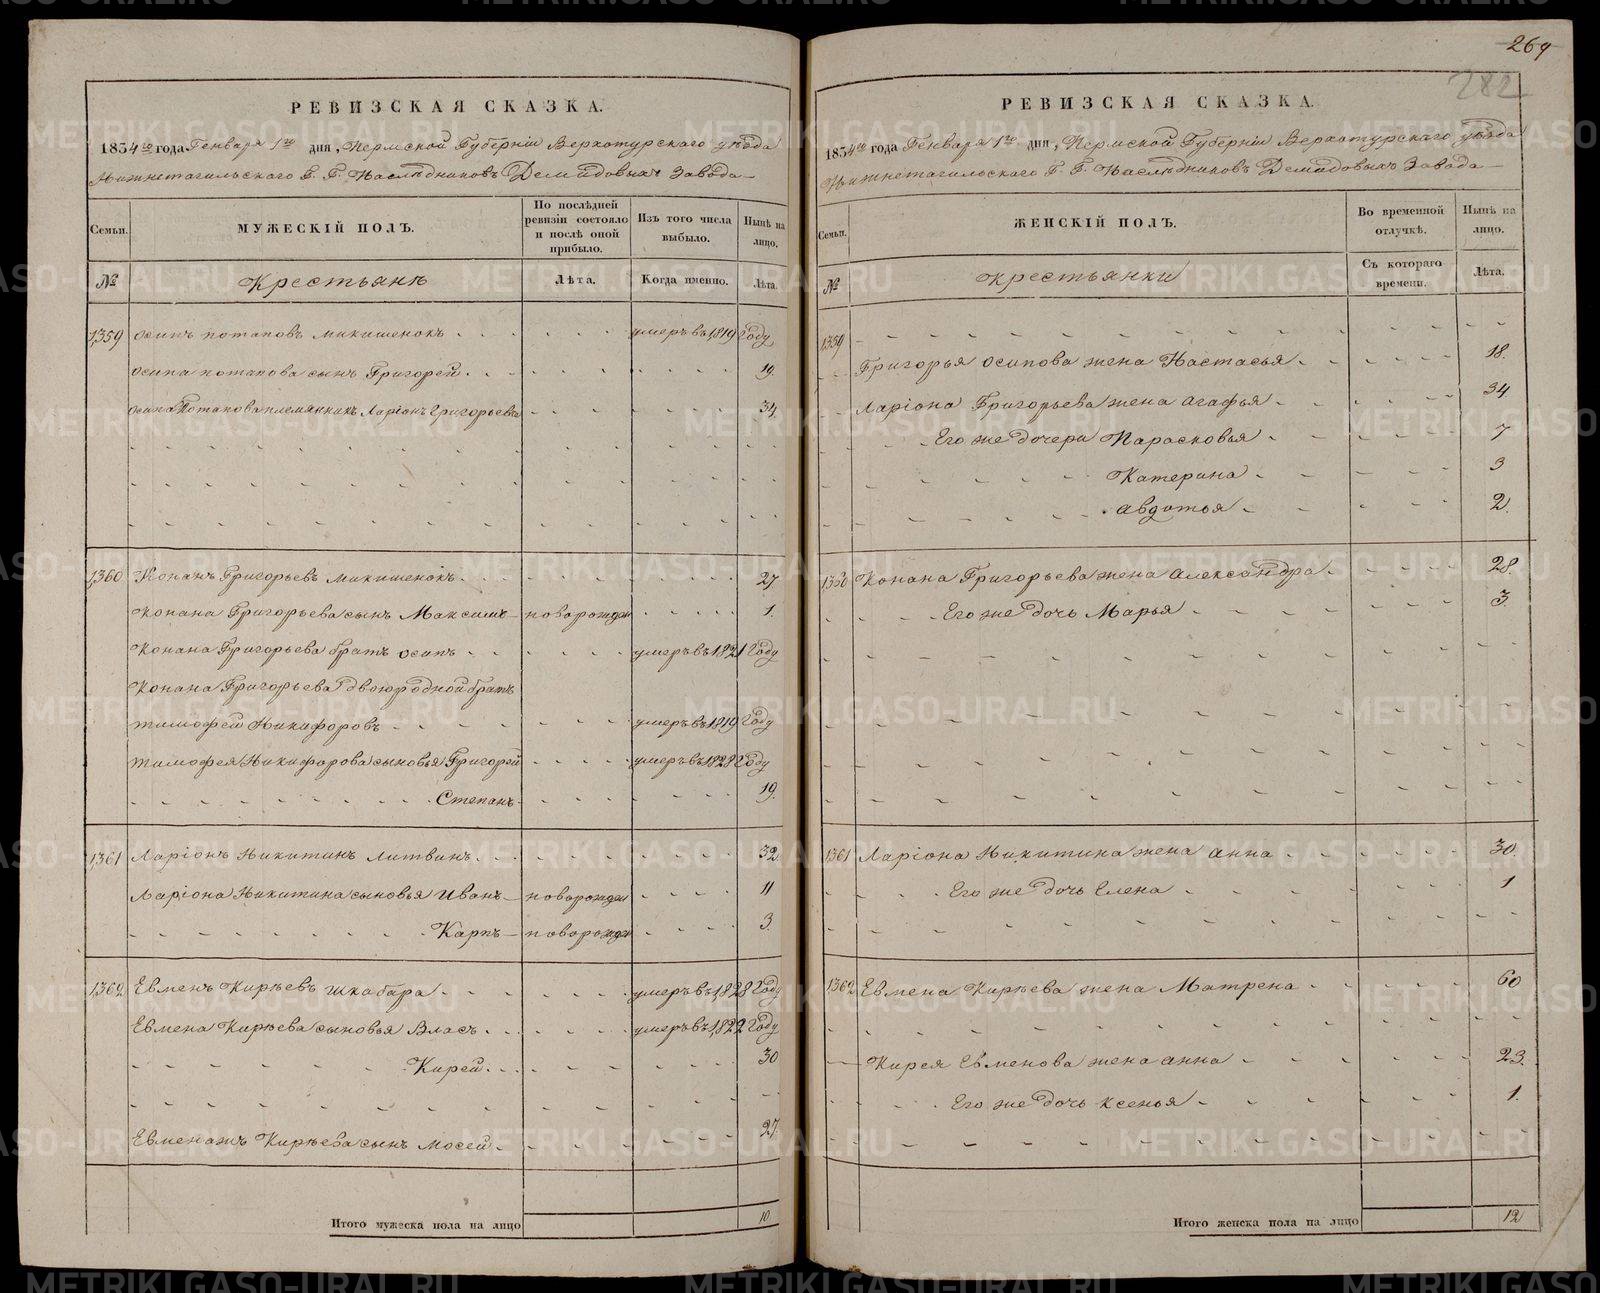 РЕВИЗСКАЯ СКАЗКА.
1834го года Генваря 1го дня, Пермской Губерніи Верхотурскаго уѣзда
Нижнетагильскаго Г. Г. Наслѣдниковъ Демидовыхъ Завода
Семьи.
МУЖЕСКІЙ ПОЛЪ.
По послѣдней ревизіи состояло и послѣ оной прибыло.
Изъ того числа выбыло.
Нынѣ на лицо.
№
Крестьянъ
Лѣта.
Когда именно.
Лѣта.
1359 Осипъ Потаповъ Микишенокъ умеръ въ 1819 Году
Осипа Потапова сынъ Григорей 19.
Осипа Потапова племянникъ Ларіонъ Григорьевъ 34
1360 Конанъ Григорьевъ Микишенокъ 27
Конана Григорьева сынъ Максимъ новорожден 1.
Конана Григорьева братъ Осипъ умеръ въ 1821 Году
Конана Григорьева двоюродной братъ
Тимофей Никифоровъ умеръ въ 1819 Году
Тимофея Никифорова сыновья Григорей умеръ въ 1828 Году
Степанъ 19.
1361 Ларіонъ Никитинъ Литвинъ 32
Ларіона Никитина сыновья Иванъ новорожден 11
Карпъ новорожден 3.
1362 Евменъ Кирѣевъ Шкабара умеръ въ 1828 Году
Евмена Кирѣева сыновья Власъ умеръ въ 1822 Году
Кирей 30
Евмена жъ Кирѣева сынъ Мосей 27.
Итого мужеска пола на лицо 10
269
282
РЕВИЗСКАЯ СКАЗКА.
1834го года Генваря 1го дня, Пермской Губерніи Верхотурскаго уѣзда
Нижнетагильскаго Г. Г. Наслѣдниковъ Демидовыхъ Завода
Семьи.
ЖЕНСКІЙ ПОЛЪ.
Во временной отлучкѣ.
Нынѣ на лицо.
№
Крестьянки
Съ котораго времени.
Лѣта.
1359
Григорья Осипова жена Настасья 18.
Ларіона Григорьева жена Агафья 34
Его же дочери Парасковья 7
Катерина 3
Авдотья 2.
1360 Конана Григорьева жена Александра 28.
Его же дочь Марья 3.
1361 Ларіона Никитина жена Анна 30.
Его же дочь Елена 1
1362 Евмена Кирѣева жена Матрена 60
Кирея Евменова жена Анна 23.
Его же дочь Ксенья 1.
Итого женска пола на лицо 12
METRIKI.GASO-URAL.RU